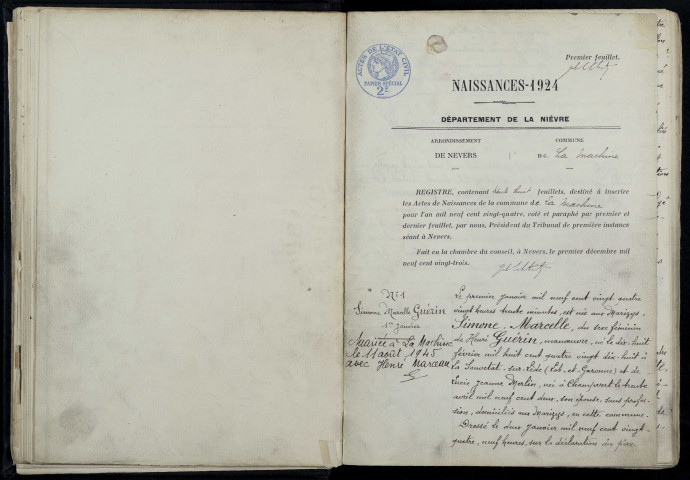 Premier feuillet.
ACTES DE L'ÉTAT CIVIL
PAPIER SPÉCIAL
2F
NAISSANCES-1924
DÉPARTEMENT DE LA NIÈVRE
ARRONDISSEMENT
DE NEVERS
COMMUNE
DE La Machine
REGISTRE, contenant huit feuillets, destiné à inscrire
les Actes de Naissances de la commune de La Machine
pour l'an mil neuf cent vingt-quatre, coté et paraphé par premier et
dernier feuillet, par nous, Président du Tribunal de première instance
séant à Nevers.
Fait en la chambre du conseil, à Nevers, le premier décembre mil
neuf cent vingt-trois.
N° 1
Simone Marcelle Guérin
1er Janvier
Mariée à La Machine
le 11 août 1945
avec Henri Marceau
Le premier janvier mil neuf cent vingt quatre
vingt heures trente minutes, est née aux Marizys
Simone, Marcelle, du sexe féminin
de Henri Guérin, manœuvre, né le dix huit
février mil huit cent quatre vingt dix-huit à
La Sauvetat-sur-Lède (Lot-et-Garonne) et de
Lucie Jeanne Merlin, née à Champvert le trente
avril mil neuf cent deux, son épouse, sans profes-
sion, domiciliés aux Marizys, en cette commune.
Dressé le deux janvier mil neuf cent vingt-
quatre, neuf heures, sur la déclaration du père